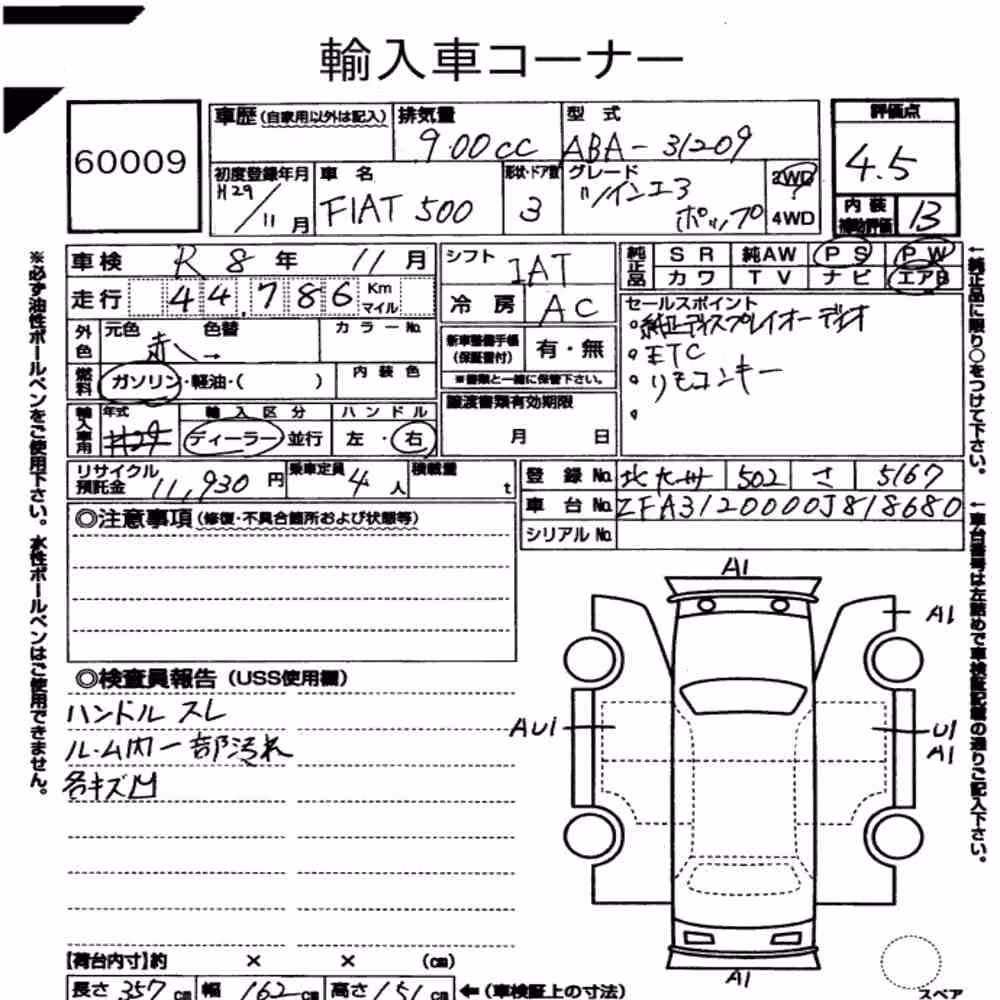 輸入車コーナー
60009
車歴 (自家用以外は記入)
排気量
900cc
型式
ABA-31209
評価点
4.5
初度登録年月
H29/11月
車名
FIAT 500
形状・ドア数
3
グレード
ツインエア
ポップ
2WD
4WD
内装
補助評価
B
車検 R8年 11月
走行 44,786 Km マイル
シフト IAT
冷房 AC
純正品
SR 純AW PS PW
カワ TV ナビ エアB
外色
元色 色替
赤 →
カラーNo.
燃料
ガソリン・軽油・( )
内装色
新車整備手帳
(保証書付)
有・無
※書類と一緒に保管下さい。
セールスポイント
。純正ディスプレイオーディオ
。ETC
。リモコンキー
。
輸入車用
年式
H29
輸入区分
ディーラー 並行
ハンドル
左・右
譲渡書類有効期限
月 日
リサイクル
預託金 11,930円
乗車定員 4人
積載量 t
登録No. 北九州 502 さ 5167
車台No. ZFA3120000J818680
シリアルNo.
◎注意事項 (修復・不具合箇所および状態等)
◎検査員報告 (USS使用欄)
ハンドル スレ
ルーム内一部汚れ
各キズ凹
A1
A1
AU1
U1
A1
A1
スペア
【荷台内寸】約 × × (cm)
長さ 357cm 幅 162cm 高さ 151cm ←(車検証上の寸法)
※必ず油性ボールペンをご使用下さい。水性ボールペンはご使用できません。
←純正品に限り○をつけて下さい。
←車台番号は左詰めで車検証記載の通りご記入下さい。